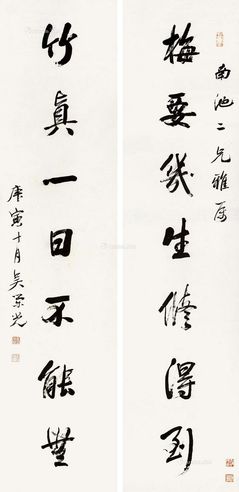 南池二兄雅属
梅要几生修得到
竹真一日不能无
庚寅十月吴荣光